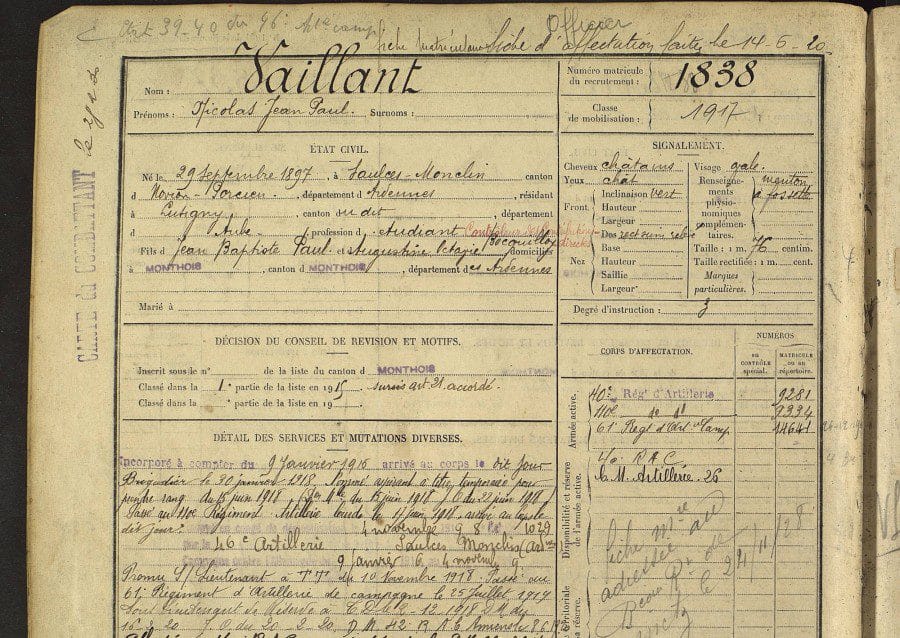 Art 39-40 du 46e
Officier
fiche d'affectation faite le 14-6-20
CARTE du COMBATTANT
Nom : Vaillant
Prénoms : Nicolas Jean Paul. Surnoms :
Numéro matricule
du recrutement : 1838
Classe
de mobilisation : 1917
ÉTAT CIVIL.
Né le 29 Septembre 1897, à Saulces-Monclin canton
d Novion-Porcien, département d Ardennes, résidant
à Lusigny, canton du dit, département
d Aube, profession d Etudiant
Fils d Jean Baptiste Paul et d Augustine Octavie Bocquillon domiciliés
à MONTHOIS, canton d MONTHOIS, département des Ardennes
Marié à
SIGNALEMENT.
Cheveux châtains Visage ovale
Yeux chât
Front Inclinaison vert
Hauteur
Largeur
Nez Dos
Base
Hauteur
Saillie
Largeur
Renseignements physionomiques complémentaires. menton à fossette
Taille : 1 m. 76 centim.
Taille rectifiée : 1 m. cent.
Marques
particulières.
Degré d'instruction : 3
DÉCISION DU CONSEIL DE REVISION ET MOTIFS.
Inscrit sous le n° de la liste du canton d MONTHOIS
Classé dans la 1e partie de la liste en 1915 sursis art 21 accordé.
Classé dans la partie de la liste en 191
CORPS D'AFFECTATION.
NUMÉROS
au CONTRÔLE spécial.
MATRICULE ou au répertoire.
Armée active.
40e Régt d'Artillerie 9281
110e do dt 9334
61e Regt d'Art. Camp 4641
Disponibilité et réserve de l'armée active.
40 R A C
C. M. Artillerie. 26
DÉTAIL DES SERVICES ET MUTATIONS DIVERSES.
Incorporé à compter du 9 Janvier 1916 arrivé au corps le dit jour
Brigadier le 30 janvier 1918. Nommé aspirant à titre temporaire pour
prendre rang du 15 juin 1918 du 15 juin 1918 J.O du 22 juin 1918
Passé au 110e Régiment Artillerie lourde le 11 juin 1918. arrivé au corps le
dit jour. 4 novembre 1029
46e Artillerie Saulces Monclin (Ard
9 Janvier 4 novembre
Promu S/Lieutenant à T.T. du 10 Novembre 1918. Passé au
61e Régiment d'Artillerie de campagne le 25 Juillet 1919
Sous Lieutenant de Réserve à 12-1918 D.M. du
16-2-20 J.O du 20-2-20. D M 412
Fiche mle adressée au
le 24/11/28